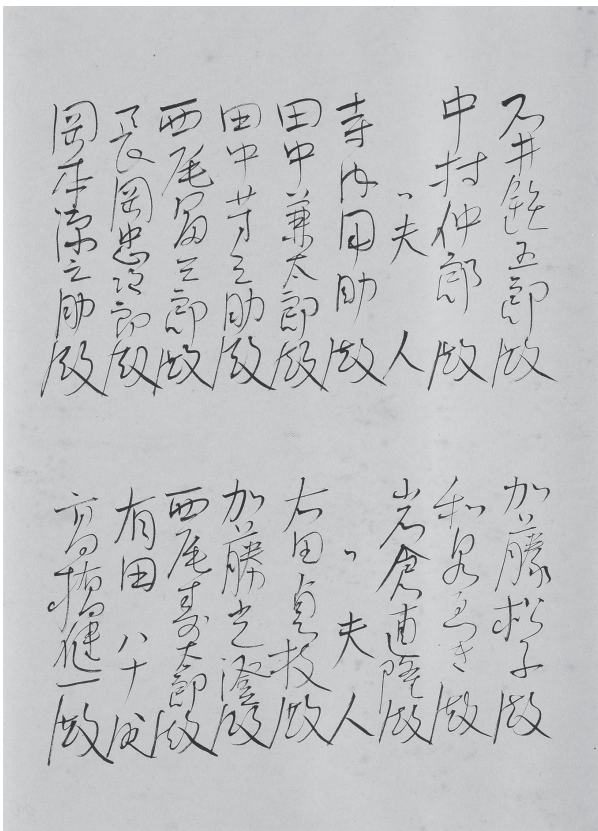 石井鉄五郎殿
中村仲郎殿
〃夫人
寺内困助殿
田中兼太郎殿
田中芳之助殿
西尾富三郎殿
長岡忠次郎殿
岡本源之助殿
加藤松子殿
和泉 き殿
岩倉 隆殿
〃夫人
右田貞枝殿
加藤光澄殿
西尾寿太郎殿
有田八十 殿
高橋健一殿